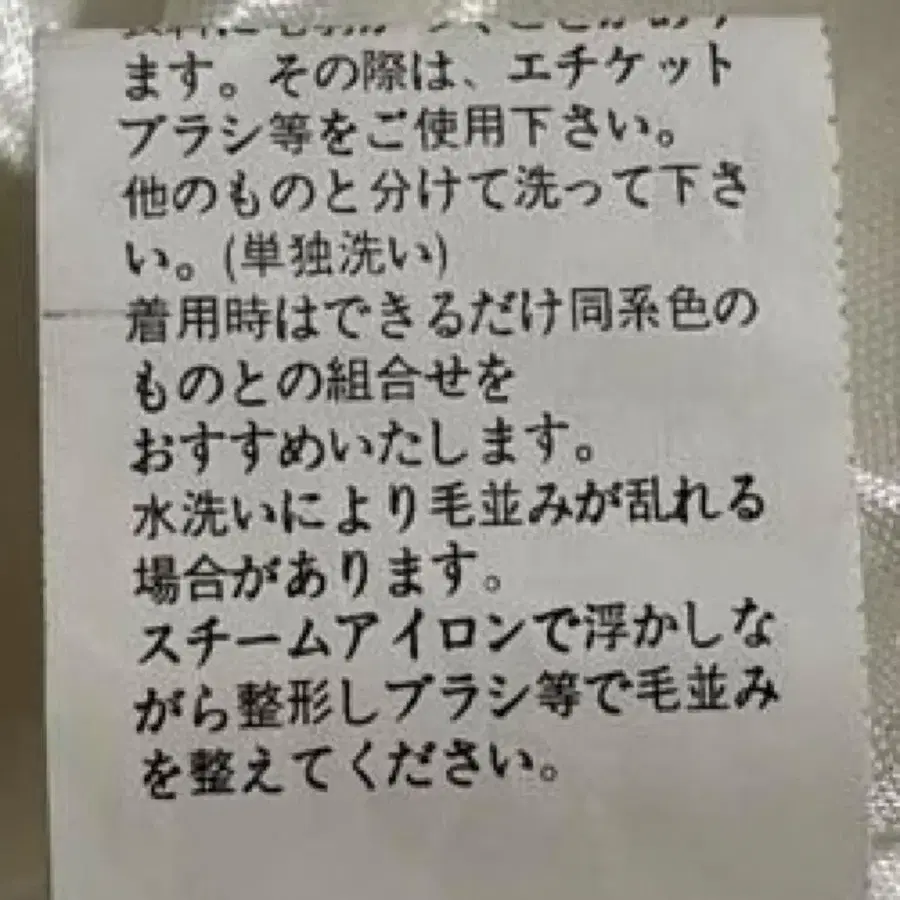 ます。その際は、エチケット
ブラシ等をご使用下さい。
他のものと分けて洗って下さ
い。(単独洗い)
着用時はできるだけ同系色の
ものとの組合せを
おすすめいたします。
水洗いにより毛並みが乱れる
場合があります。
スチームアイロンで浮かしな
がら整形しブラシ等で毛並み
を整えてください。